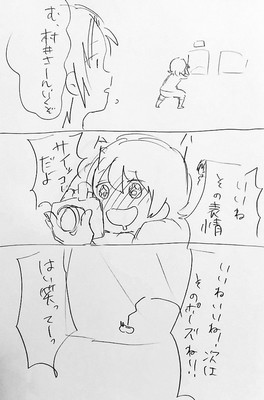 む、村井さーん、いくぞ
いいね
その表情
サイッコー
だよ
いいねいいね!次は
そのポーズね!!
はい笑ってーっ